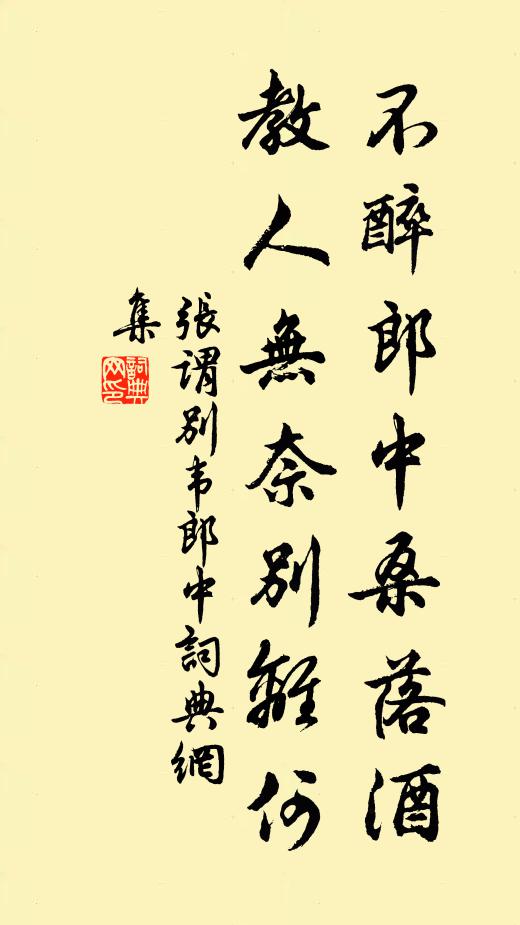 不醉郎中桑落酒
教人無奈別離何
張謂別韦郎中詞典網
集
詞典网印